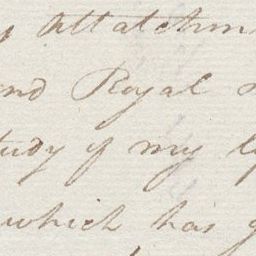 Attatchm
and Royal
study of my
which has